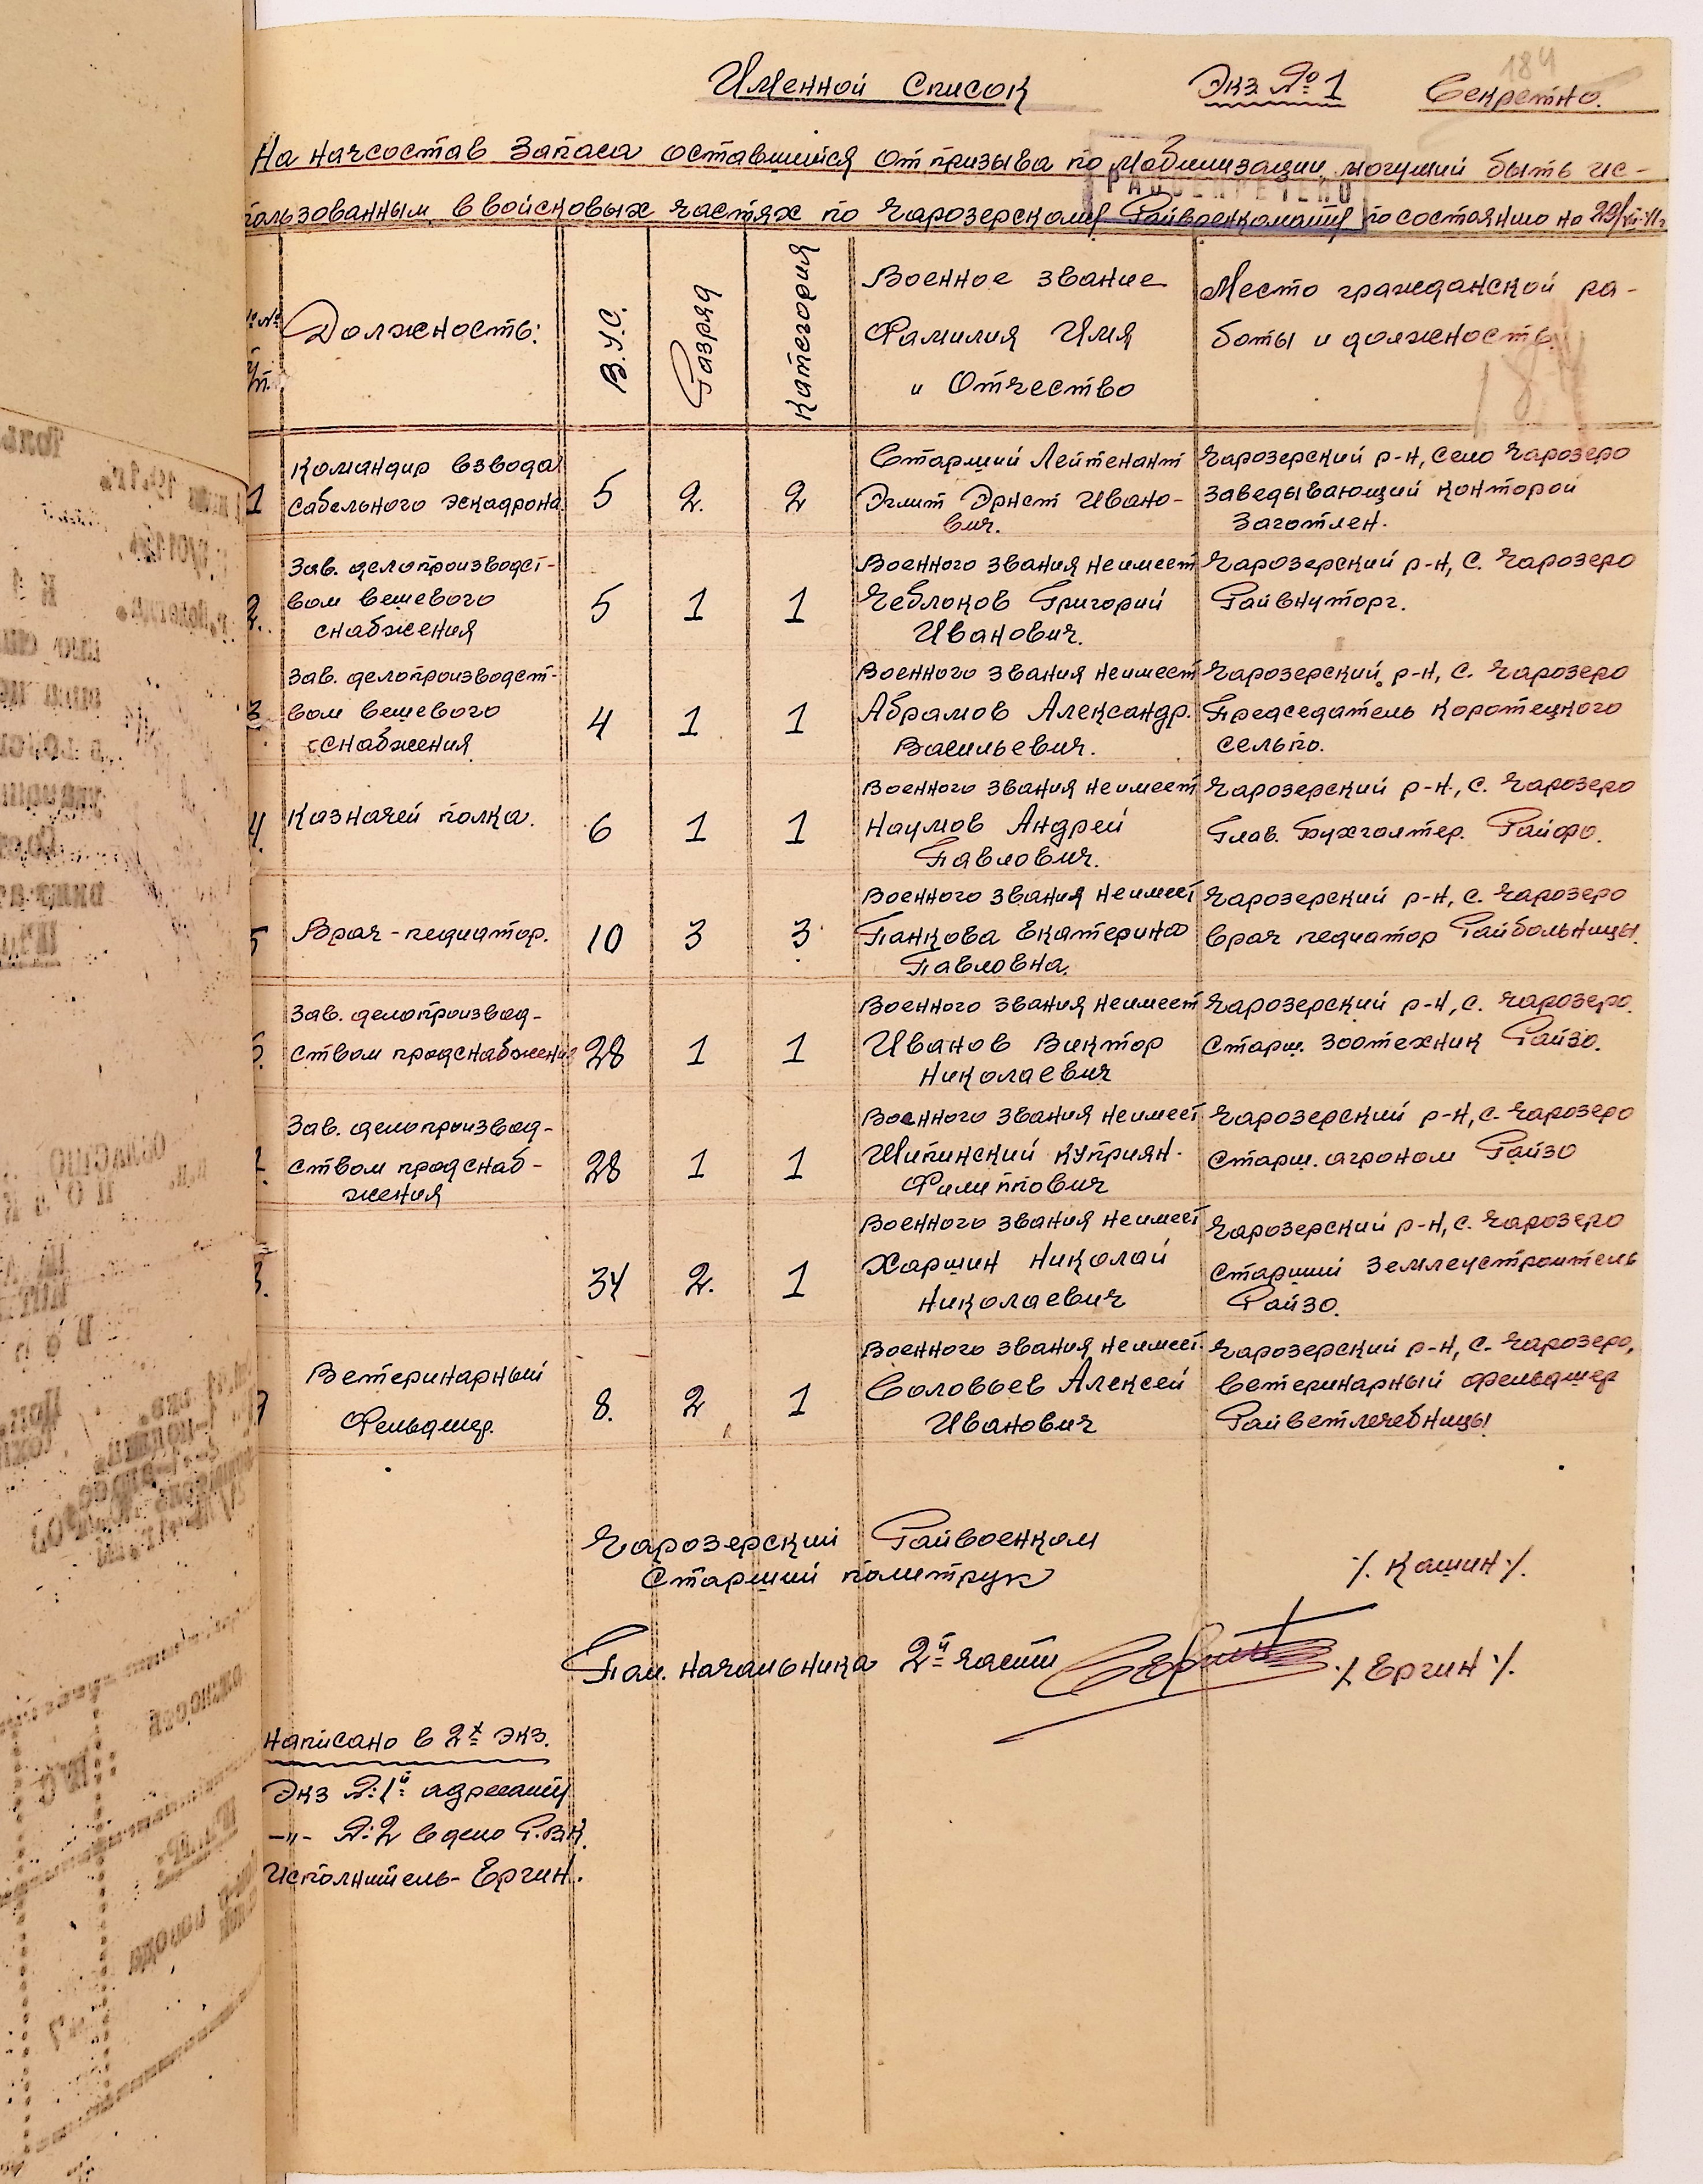 184
Именной Список Экз № 1 Секретно.
На начсостав Запаса оставшийся от призыва по мобилизации, могущий быть ис-
пользованным в войсковых частях по Чарозерскому Райвоенкомату по состоянию на
РАССЕКРЕЧЕНО
№№ п/п. Должность: В.У.С. Разряд Категория Военное звание Фамилия Имя и Отчество Место гражданской ра-
боты и должность.
184
Командир взвода Старший Лейтенант Чарозерский р-н, село Чарозеро
1 сабельного эскадрона. 5 2. 2 Эглит Эрнст Ивано- заведывающий конторой
вич. Заготлен.
Зав. делопроизводст- Военного звания неимеет Чарозерский р-н, с. Чарозеро
2. вом вещевого 5 1 1 Чеблоков Григорий Райвнуторг.
снабжения Иванович.
Зав. делопроизводст- Военного звания неимеет Чарозерский р-н, с. Чарозеро
3. вом вещевого 4 1 1 Абрамов Александр. Председатель Коротецкого
снабжения Васильевич. сельпо.
Военного звания неимеет Чарозерский р-н, с. Чарозеро
4. Казначей полка. 6 1 1 Наумов Андрей Глав. Бухгалтер. Райфо.
Павлович.
Военного звания неимеет Чарозерский р-н, с. Чарозеро
5 Врач-педиатор. 10 3 3 Панкова Екатерина врач педиатор Райбольницы.
Павловна.
Зав. делопроизвод- Военного звания неимеет Чарозерский р-н, с. Чарозеро.
6. ством продснабжения 28 1 1 Иванов Виктор Старш. зоотехник Райзо.
Николаевич
Зав. делопроизвод- Военного звания неимеет Чарозерский р-н, с. Чарозеро
ством продснаб- 28 1 1 Шипинский Куприян. Старш. агроном Райзо
жения Филиппович
Военного звания неимеет Чарозерский р-н, с. Чарозеро
34 2. 1 Харшин Николай Старший Землеустроитель
Николаевич Райзо.
Военного звания неимеет. Чарозерский р-н, с. Чарозеро,
Ветеринарный 8. 2 1 Соловьев Алексей Ветеринарный фельдшер
Фельдшер. Иванович Райветлечебницы
Чарозерский Райвоенком
Старший политрук /. Кашин ./.
Пом. начальника 2й части ./. Ергин ./.
Написано в 2х экз.
Экз №:1й адресату
-"- №:2 в дело Р.В.К.
Исполнитель- Ергин.